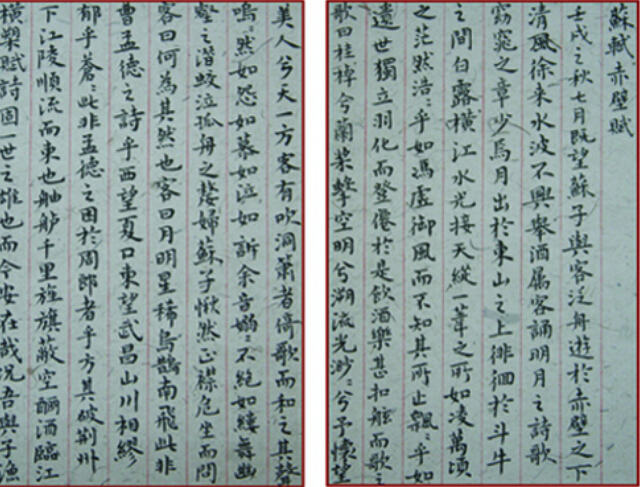 蘇軾 赤壁賦
壬戌之秋七月既望蘇子與客泛舟遊於赤壁之下
清風徐来水波不興舉酒属客誦明月之詩歌
窈窕之章少焉月出於東山之上徘徊於斗牛
之間白露橫江水光接天縱一葦之所如凌萬頃
之茫然浩〻乎如馮虛御風而不知其所止飄〻乎如
遺世獨立羽化而登僊於是飲酒樂甚扣舷而歌之
歌曰桂棹兮蘭槳擊空明兮溯流光渺〻兮予懷望
美人兮天一方客有吹洞簫者倚歌而和之其聲
嗚〻然如怨如慕如泣如訴余音嫋〻不絕如縷舞幽
壑之潛蛟泣孤舟之嫠婦蘇子愀然正襟危坐而問
客曰何為其然也客曰月明星稀烏鵲南飛此非
曹孟德之詩乎西望夏口東望武昌山川相繆
郁乎蒼〻此非孟德之困於周郎者乎方其破荆州
下江陵順流而東也舳艫千里旌旗蔽空釃酒臨江
橫槊賦詩固一世之雄也而今安在哉況吾與子漁